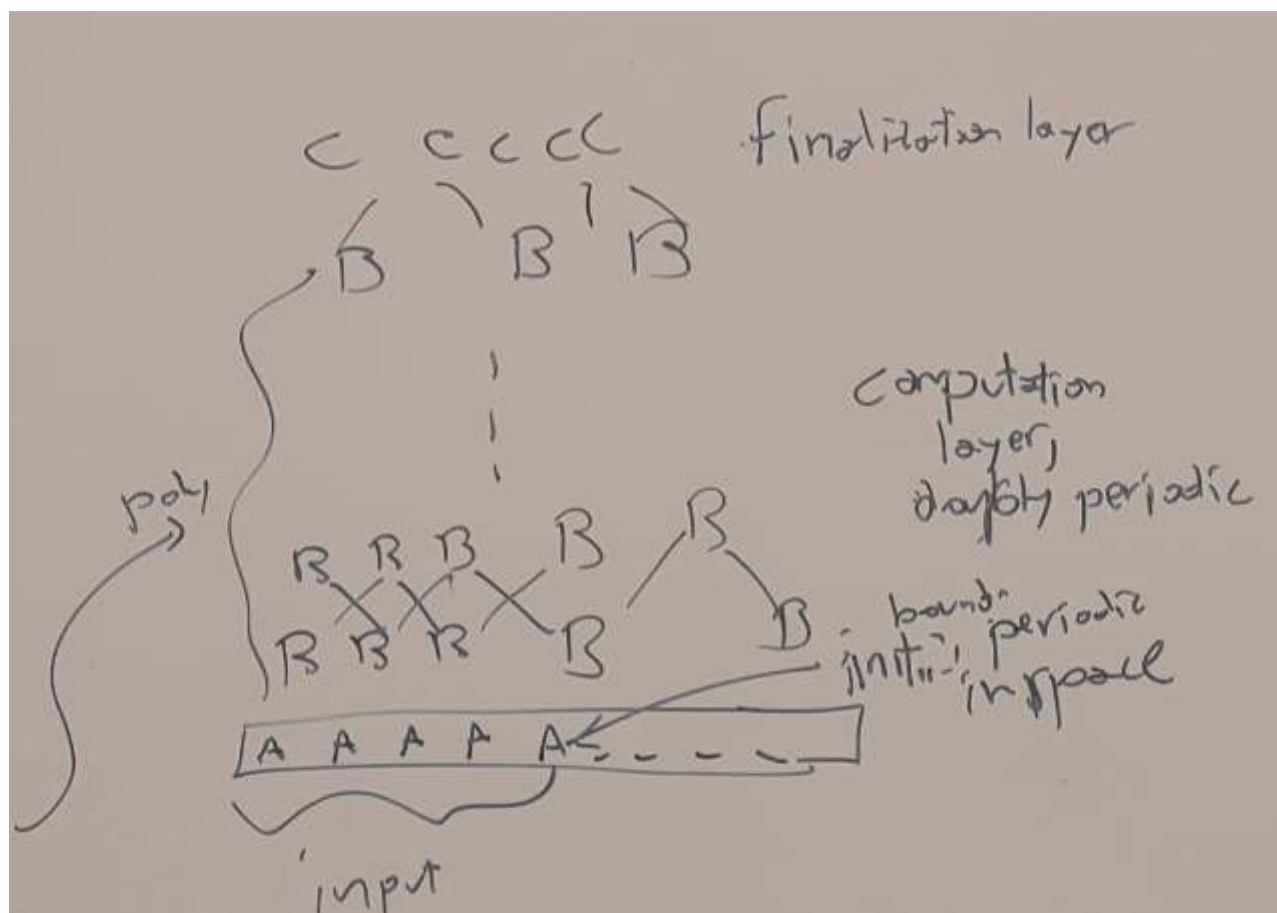 C C C C C finalization layer
B B B
computation
layer,
doubly periodic
poly
B B B B B
B B B B B
bound.
init: periodic
in space
A A A A A
input